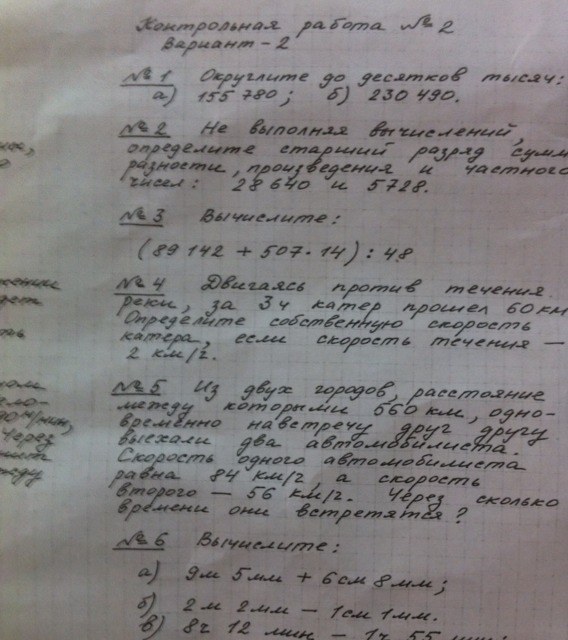 Контрольная работа №2
Вариант - 2
№1 Округлите до десятков тысяч:
а) 155 780; б) 230 490.
№2 Не выполняя вычислений,
определите старший разряд сумм
разности, произведения и частного
чисел: 28 640 и 5728.
№3 Вычислите:
(89 142 + 507 · 14) : 48
№4 Двигаясь против течения
реки, за 3ч катер прошел 60 км
Определите собственную скорость
катера, если скорость течения —
2 км/ч.
№5 Из двух городов, расстояние
между которыми 560 км, одно-
временно навстречу друг другу
выехали два автомобилиста.
Скорость одного автомобилиста
равна 84 км/ч, а скорость
второго — 56 км/ч. Через сколько
времени они встретятся?
№6 Вычислите:
а) 9м 5мм + 6см 8мм;
б) 2м 2мм — 1см 1мм.
в) 8ч 12 мин — 1ч 55